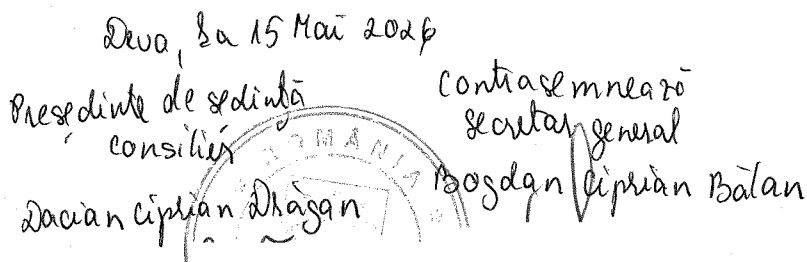 Deva, la 15 Mai 2026
Președinte de ședință
consilier
Dacian Ciprian Drăgan
Contrasemnează
secretar general
Bogdan Ciprian Bălan
ROMÂNIA